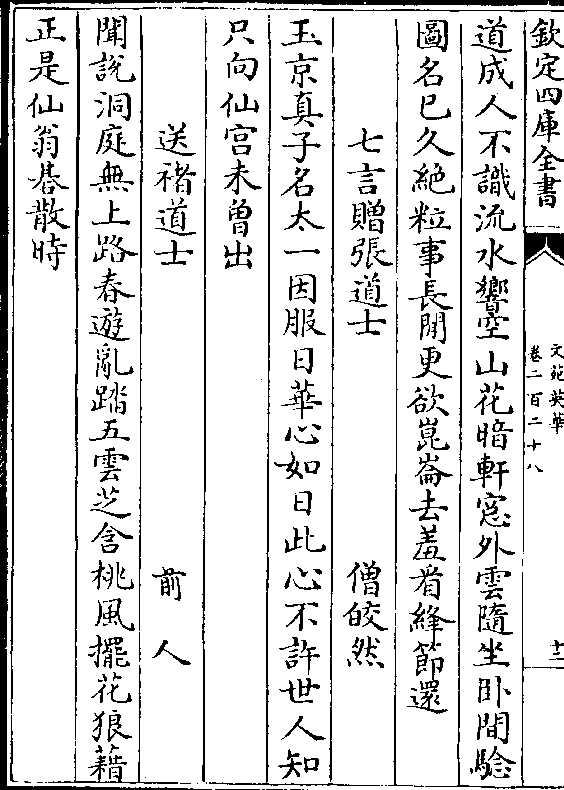 欽定四庫全書
文苑英華
卷二百二十八
十二
道成人不識流水響空山花暗軒窓外雲隨坐卧間騐
圖名已久絶粒事長閒更欲崑崙去羞看絳節還
七言贈張道士 僧皎然
玉京真子名太一因服日華心如日此心不許世人知
只向仙宫未曽出
送褚道士 前人
聞說洞庭無上路春遊亂踏五雲芝含桃風擺花狼藉
正是仙翁棊散時